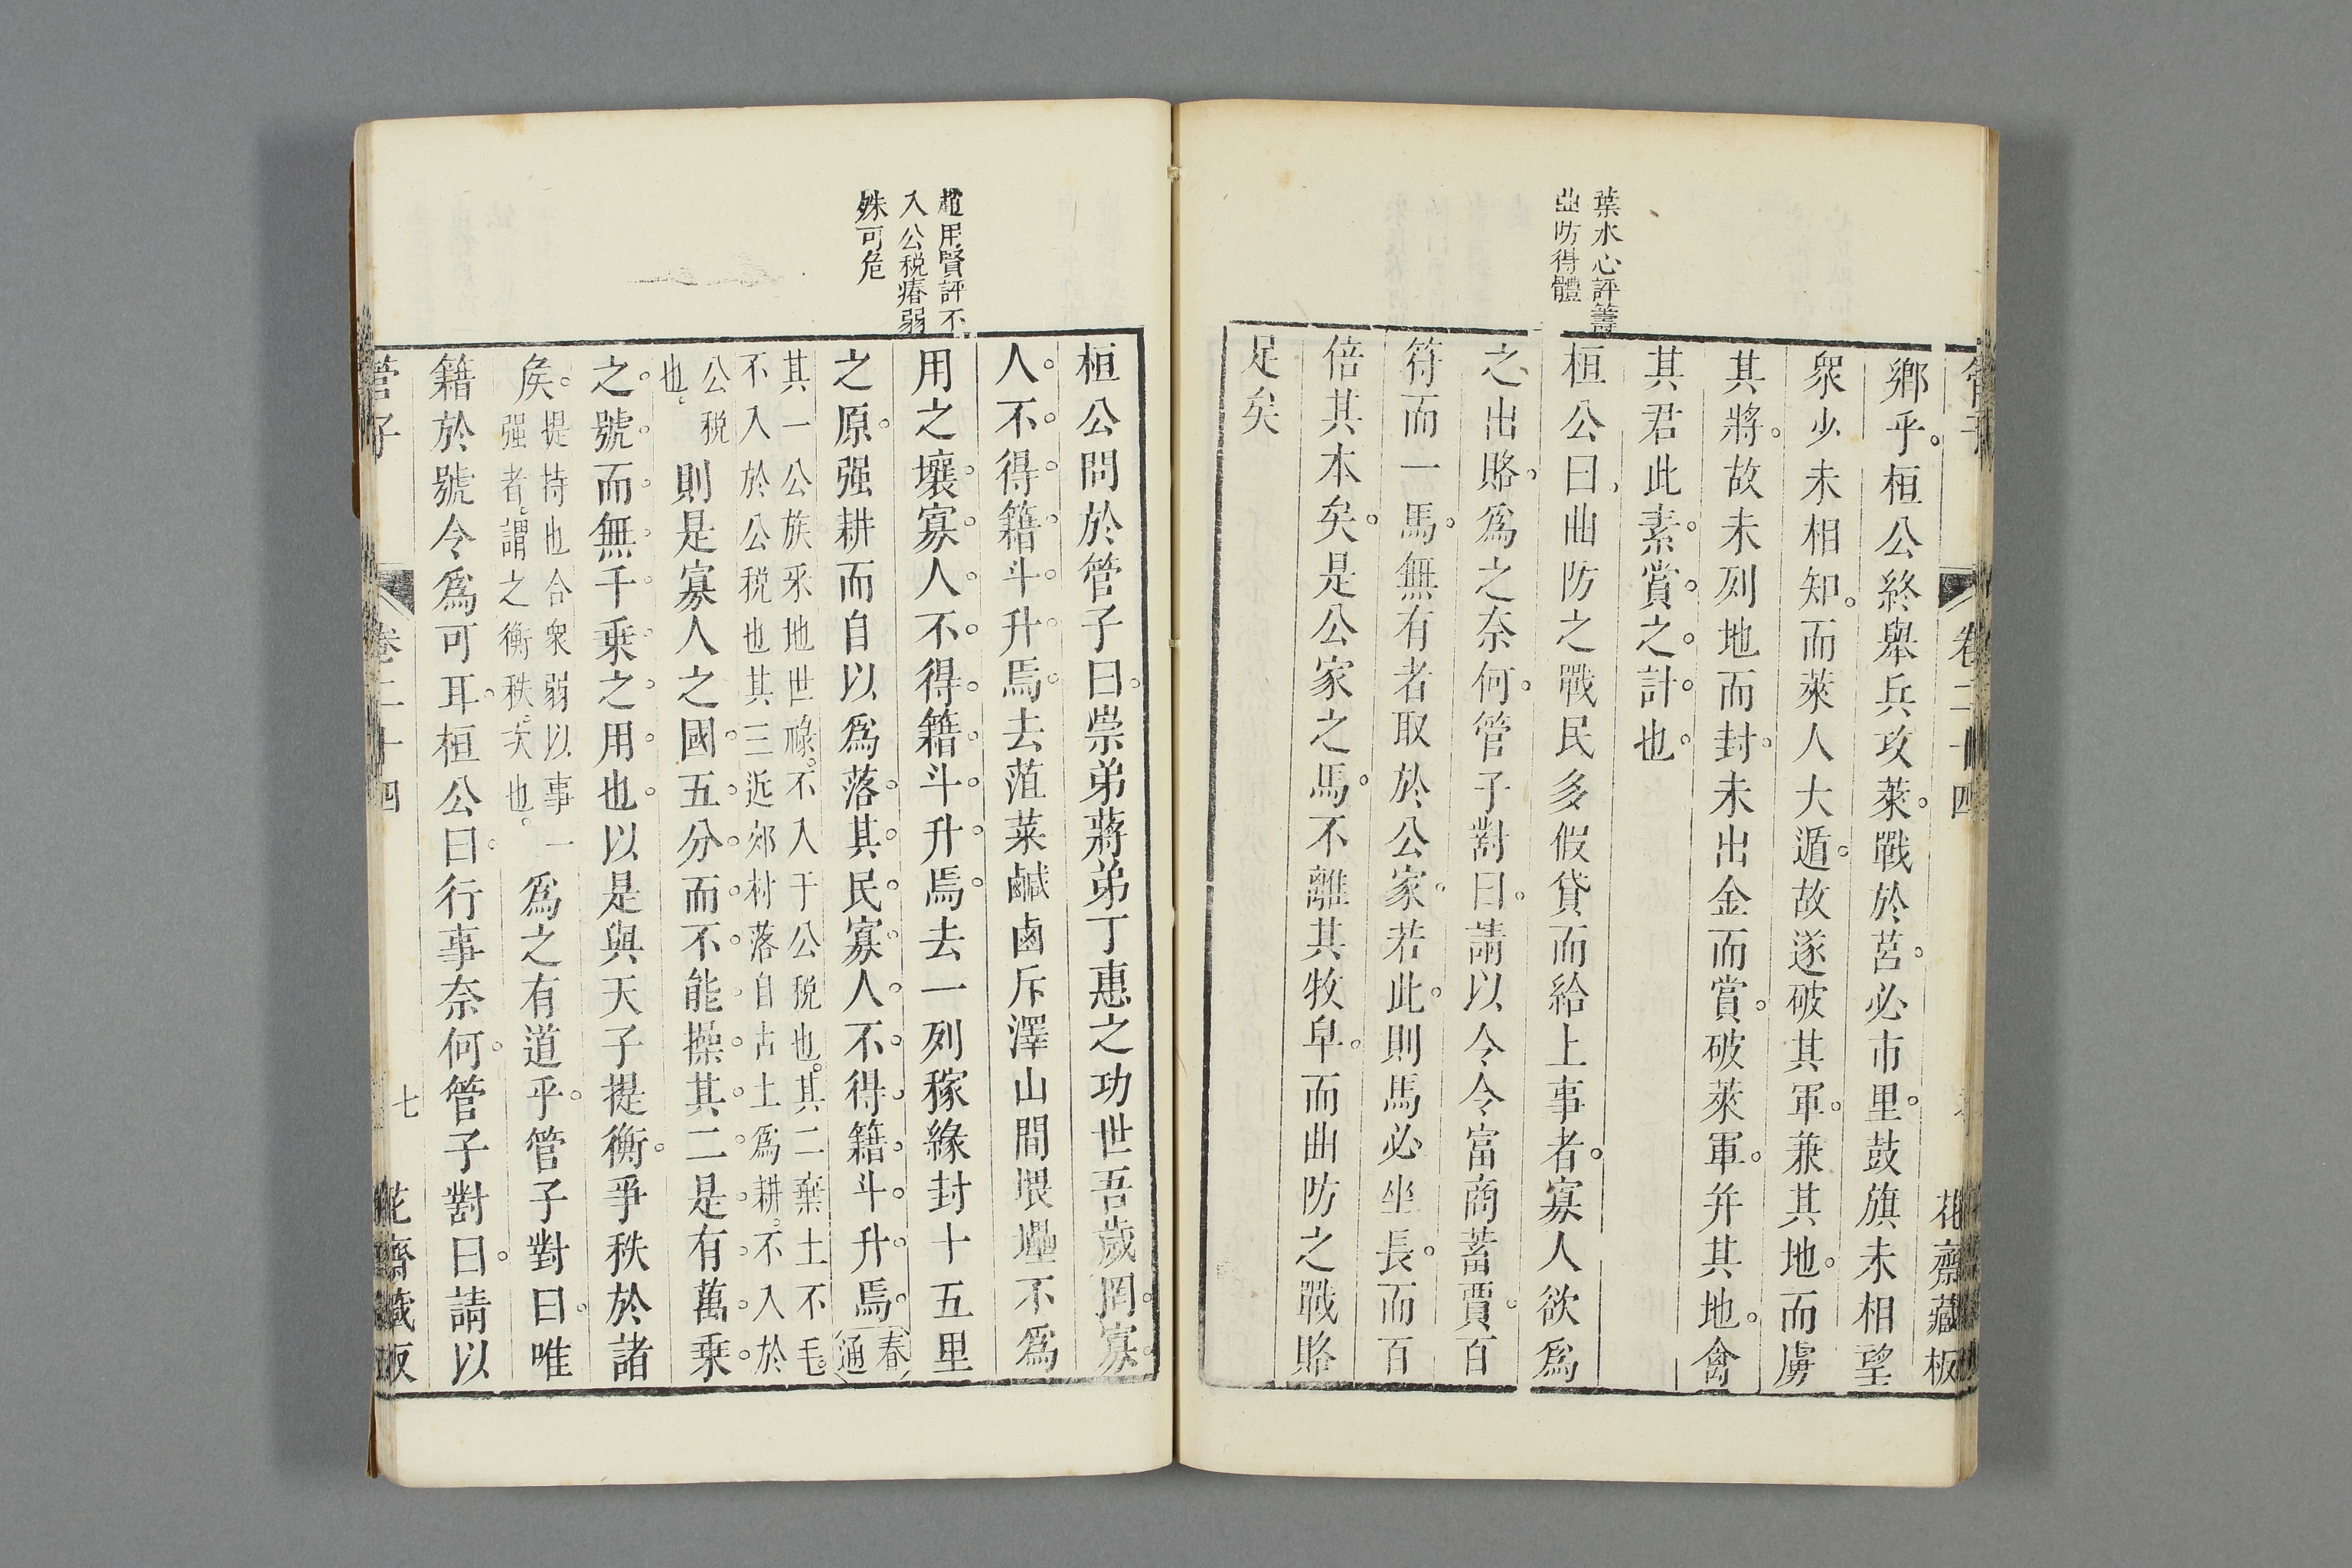 管子
卷二十四
花齋藏板
鄉乎。桓公終舉兵攻萊。戰於莒。必市里。鼓旗未相望
衆少未相知。而萊人大遁。故遂破其軍。兼其地。而虜
其將。故未列地而封。未出金而賞。破萊軍。并其地。禽
其君此素。賞。之。計。也。
葉水心評籌
曲防得體
桓公曰、曲防之戰民多假貸而給上事者。寡人欲爲
之出賂。爲之奈何。管子對曰。請以令令富商蓄賈。百
符而一馬。無有者取於公家。若此。則馬必坐長。而百
倍其本矣。是公家之馬。不離其牧皁。而曲防之戰賂
足矣
桓公問於管子曰。崇弟蔣弟丁惠之功世吾歲罔。寡。
人。不。得。籍。斗。升。焉。去菹菜鹹鹵斥澤山間㟪壘不爲
趙用賢評不
入公税瘠弱
殊可危
用之壤。寡。人。不。得。籍。斗。升。焉。去一列稼緣封十五里
之原。强耕而自以爲落。其。民。寡。人。不。得。籍。斗。升。焉。春通
其一公族采地世祿。不入于公税也。其二棄土不毛。
不入於公税也其三近郊村落自占土爲耕。不入於
公税
也。
則是寡人之國。五。分。而。不。能。操。其。二。是。有。萬。乘。
之。號。而。無。千。乘。之。用。也。以是與天子提衡。爭秩於諸
矦。
提持也合衆弱以事一
强者。謂之衡秩。次也。
爲之有道乎。管子對曰。唯
籍於號令爲可耳。桓公曰。行事奈何。管子對曰。請以
管子
卷二十四
七
花齋藏板